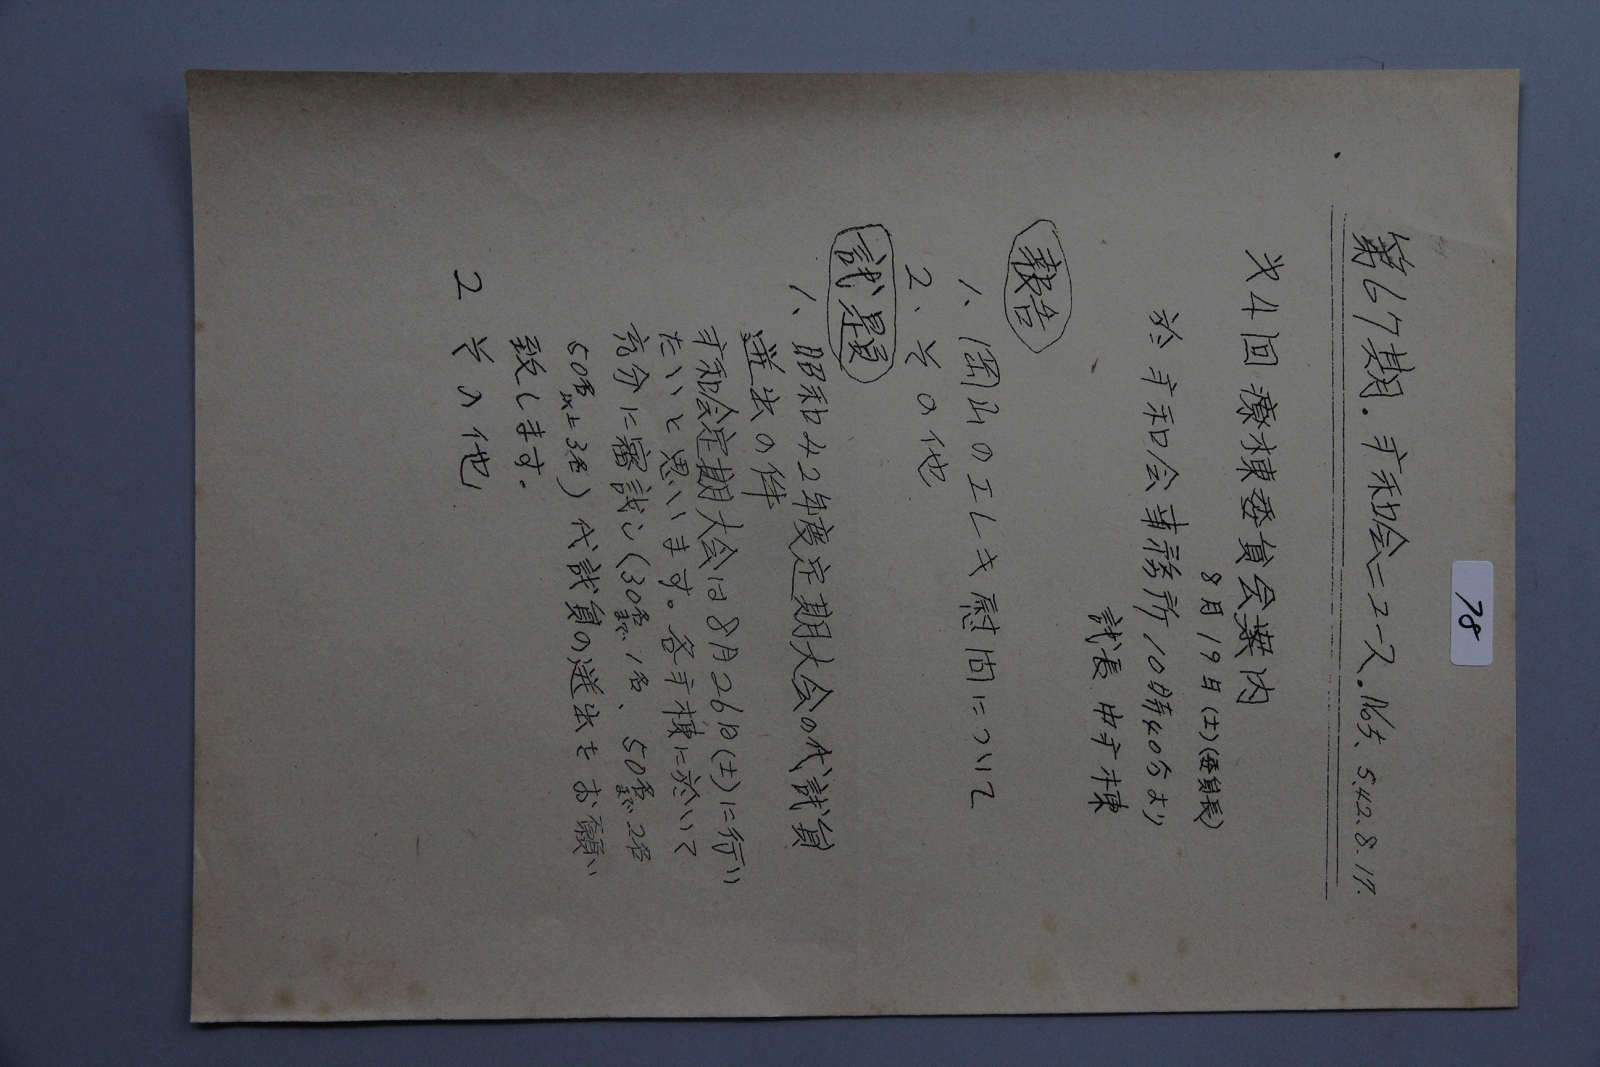 78
第67期.疗和会ニュース.No5. S.42.8.17.
第4回 療棟委員会案内
8月19日(土)(委員長)
於 疗和会事務所 10時40分より
議長 中疗棟
報告
1、岡山のエレキ慰問について
2、その他
議題
1、昭和42年度定期大会の代議員
選出の件
疗和会定期大会は8月26日(土)に行い
たいと思います。各疗棟に於いて
充分に審議し(30名まで1名、50名まで2名
50名以上3名)代議員の選出をお願い
致します.
2 その他